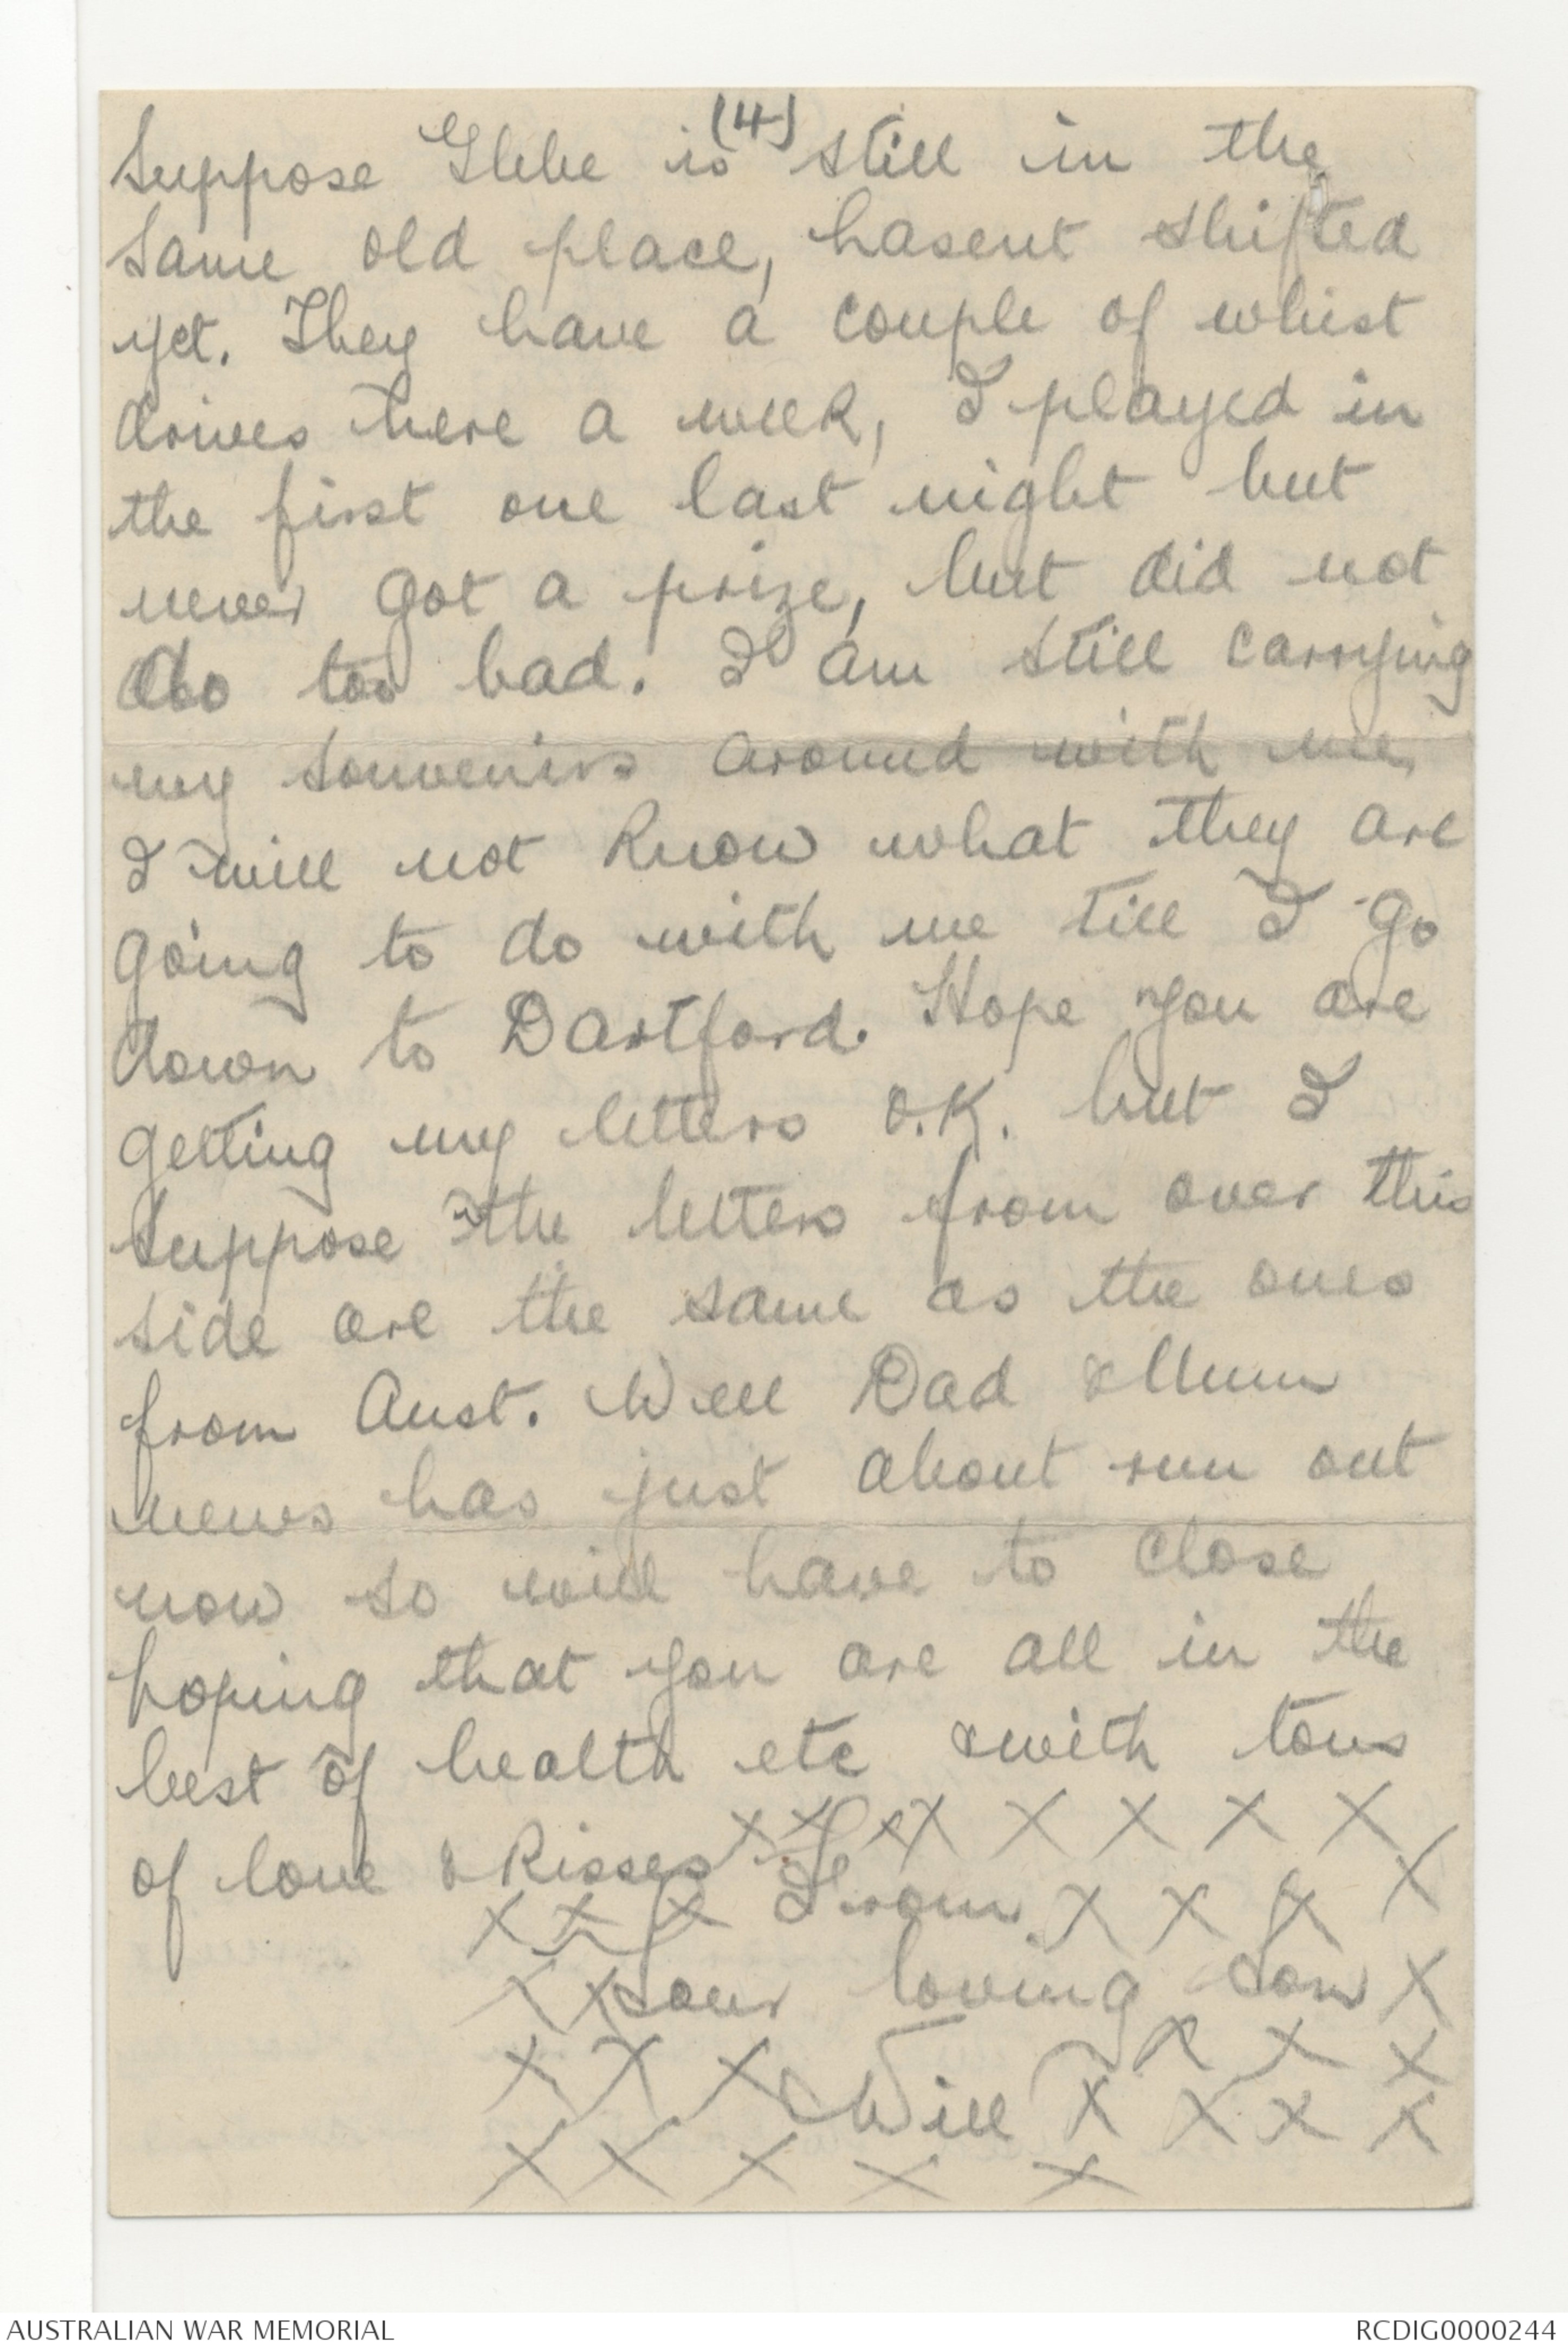 (4)
Suppose Glebe is still in the
same old place, hasent shifted
yet. They have a couple of whist
drives here a week, I played in
the first one last night but
never got a prize, but did not
do too bad. I am still carrying
my souvenirs around with me,
I will not know what they are
going to do with me till I go
down to Dartford. Hope you are
getting my letters O.K. but I
suppose the letters from over this
side are the same as the ones
from Aust. Well Dad & Mum
news has just about run out
now so will have to close
hoping that you are all in the
best of health etc & with tons
of love & kisses x x x x x x x x
x x x From x x x x
x x your loving son x
x x x Will x x x x x x x
x x x x x
AUSTRALIAN WAR MEMORIAL
RCDIG0000244